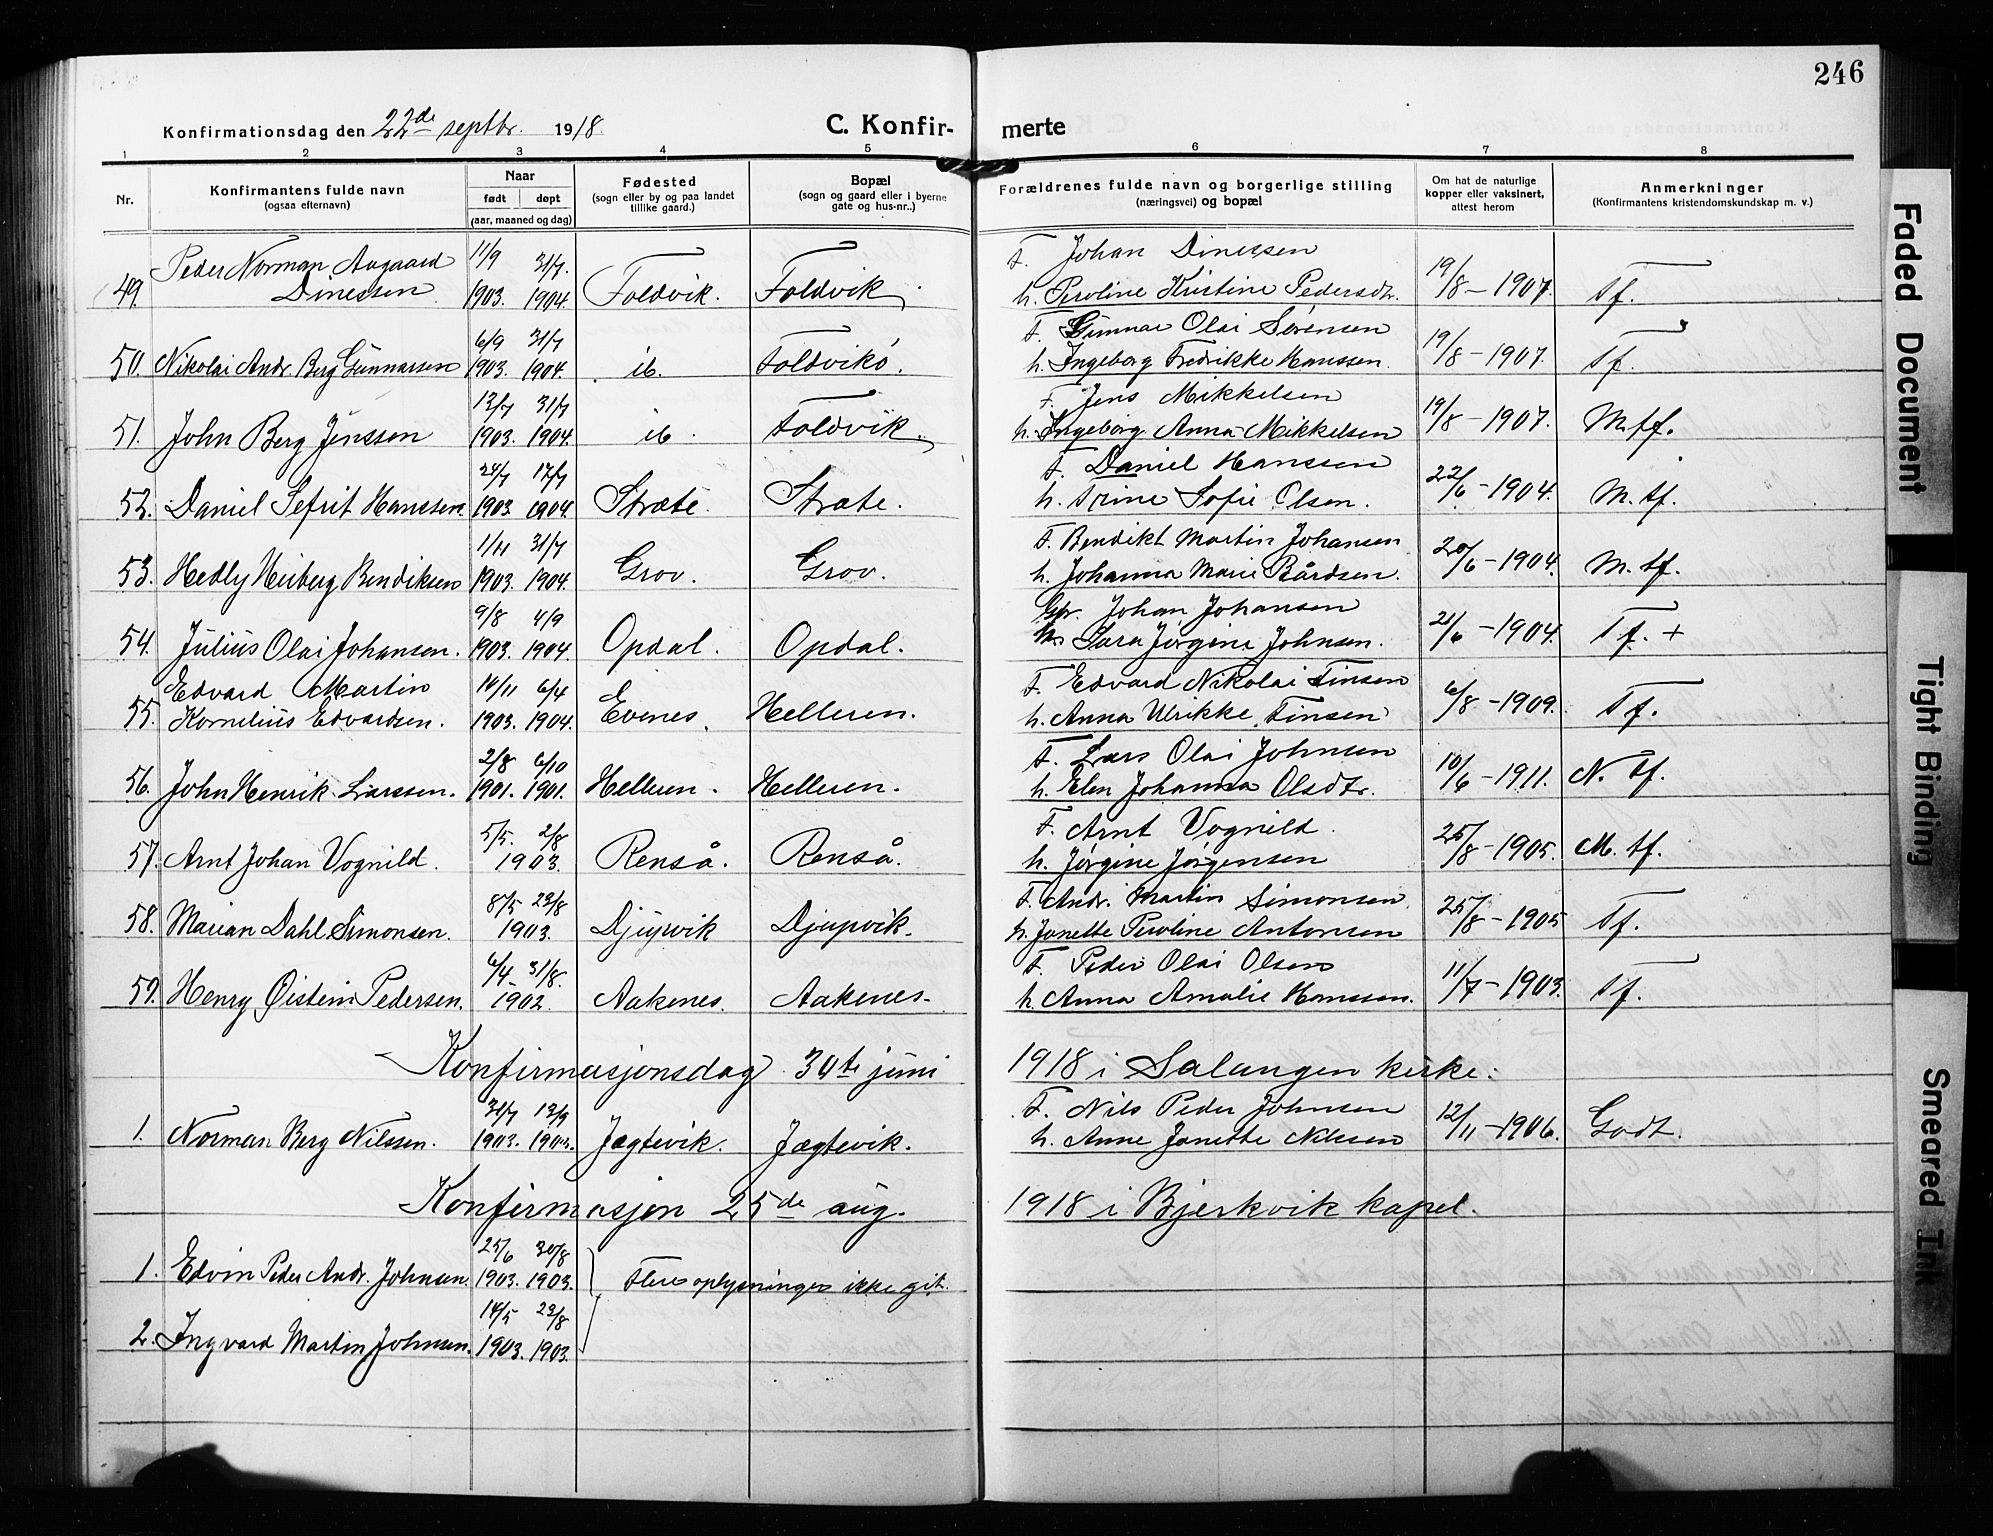 246
Konfirmationsdag den 22de septbr. 1918. C. Konfirmerte
1 2 3 4 5 6 7 8
Nr. Konfirmantens fulde navn (ogsaa efternavn) Naar født døpt (aar, maaned og dag) Fødested (sogn eller by og paa landet tillike gaard.) Bopæl (sogn og gaard eller i byerne gate og hus-nr..) Forældrenes fulde navn og borgerlige stilling (næringsvei) og bopæl Om hat de naturlige kopper eller vaksinert, attest herom Anmerkninger (Konfirmantens kristendomskundskap m. v.)
Peder Norman Aagaard 11/9 31/7. F. Johan Dinessen
49. Dinessen 1903. 1904. Foldvik. Foldvik. h. Peroline Kristine Pedersdtr. 19/8-1907. Tf.
6/9 31/7 F. Gunnar Olai Sørensen
50. Nikolai Andr. Berg Gunnarsen 1903. 1904. ib. Foldvikø. h. Ingeborg Fredrikke Hanssen. 19/8-1907. Tf.
13/7 31/7 F. Jens Mikkelsen
51. John Berg Jenssen 1903. 1904. ib. Foldvik. h. Ingeborg Anna Mikkelsen 19/8-1907. M.tf.
24/7 17/7 F. Daniel Hanssen
52. Daniel Sefrit Hanssen. 1903. 1904. Stræte. Stræte. h. Trine Sofie Olsen. 22/6-1904. M. tf.
1/11 31/7 F. Bendikt Martin Johansen
53. Hedly Heiberg Bendiksen 1903. 1904. Grov. Grov. h. Johanna Marie Bårdsen. 20/6-1904. M. tf.
9/8 4/9 Gbr. Johan Johansen
54. Julius Olai Johansen. 1903. 1904. Opdal. Opdal. h. Sara Jørgine Johnsen. 21/6-1904. Tf. +
Edvard Martin 14/11 6/4 F. Edvard Nikolai Finsen
55. Kornelius Edvardsen. 1903. 1904. Evenes. Helleren. h. Anna Ulrikke Finsen 6/8-1909. Tf.
2/8 6/10 F. Lars Olai Johnsen
56. John Henrik Larssen. 1901. 1901. Helleren. Helleren. h. Elen Johanna Olsdtr. 10/6-1911. N. tf.
5/5. 2/8 F. Arnt Vognild.
57. Arnt Johan Vognild. 1903. Renså. Renså. h. Jørgine Jørgensen 25/8-1905. M. tf.
8/5 23/8 F. Andr. Martin Simonsen
58. Marian Dahl Simonsen. 1903. Djupvik Djupvik. h. Janette Peroline Antonsen 25/8-1905 Tf.
6/4- 31/8. F. Peder Olai Olsen
59. Henry Øistein Pedersen. 1902. Aakenes. Aakenes. h. Anna Amalie Hanssen. 11/7-1903. Tf.
Konfirmasjonsdag 30te juni 1918 i Salangen kirke.
31/7 13/9 F. Nils Peder Johnsen
1. Norman Berg Nilssen. 1903. 1903. Jægtevik. Jægtevik. h. Anne Janette Nilssen 12/11-1906. Godt.
Konfirmasjon 25de aug. 1918 i Bjerkvik kapel.
25/6 30/8
1. Edvin Peder Andr. Johnsen. 1903. 1903. Flere oplysninger ikke git.
14/5 23/8
2. Ingvard Martin Johnsen. 1903. 1903.
Faded Document
Tight Binding
Smeared Ink